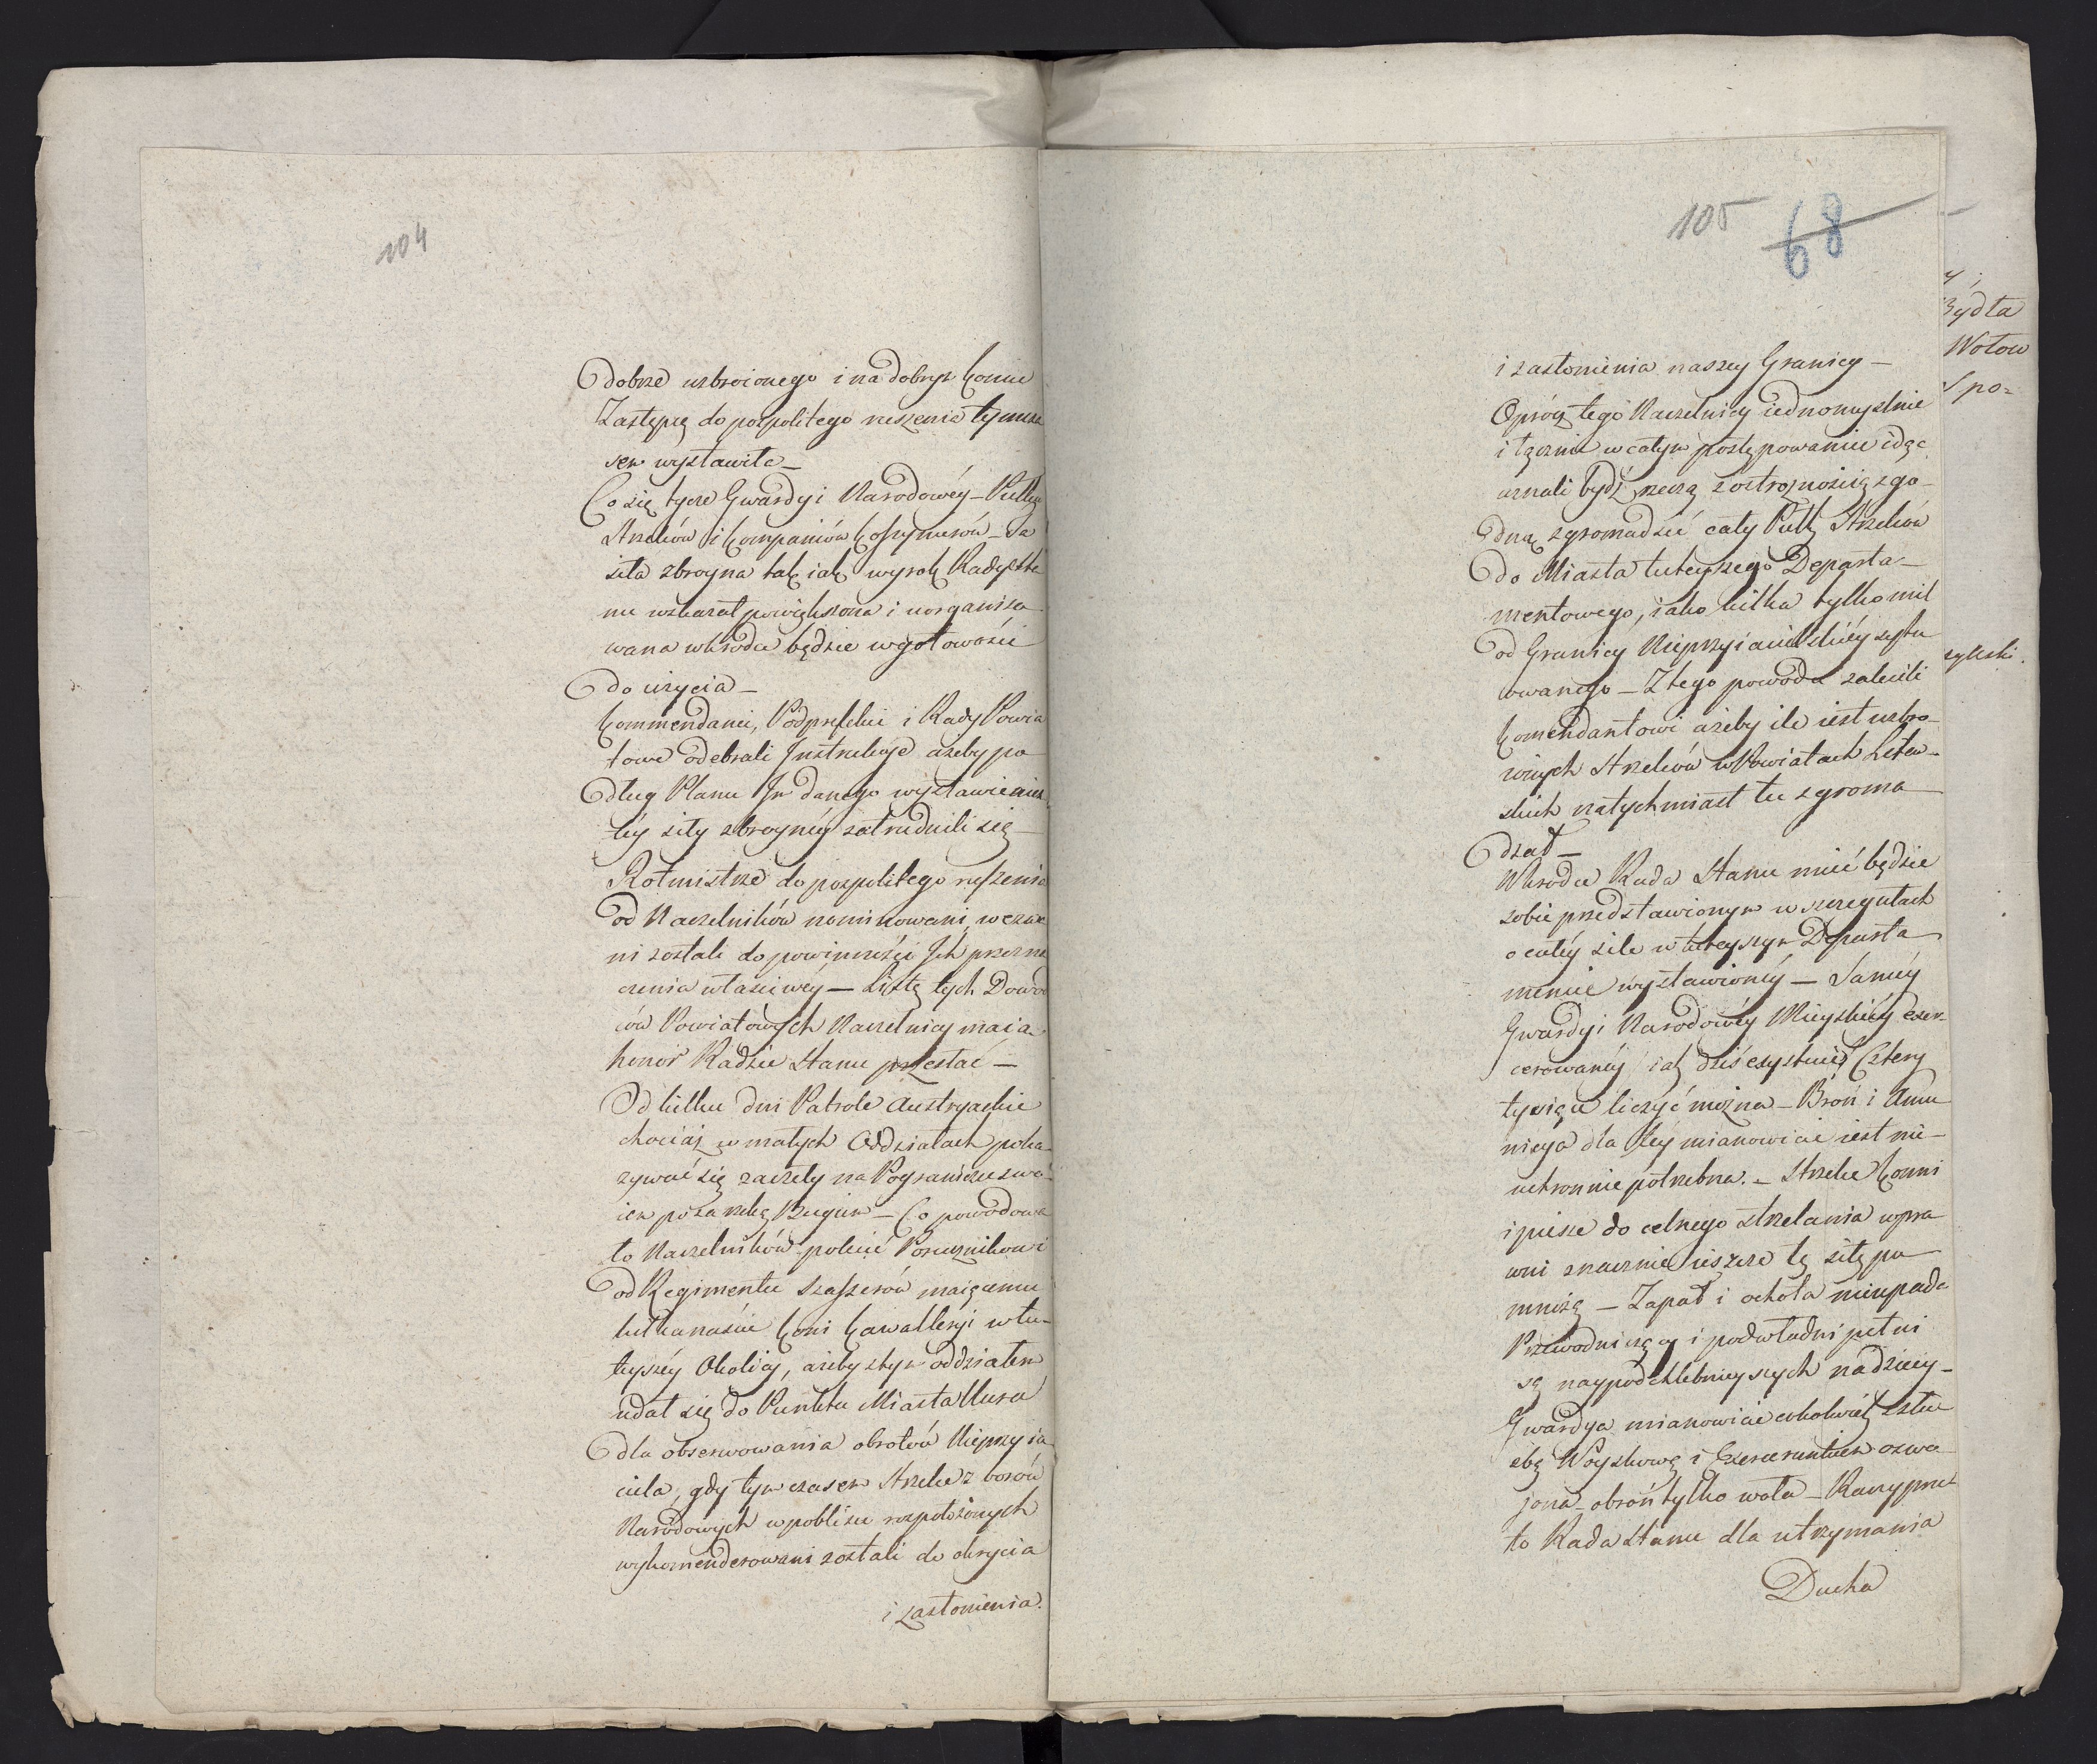 104
dobrze uzbroionego i na dobrym koniu
Zastępcę do pospolitego ruszenia tymcza
sem wystawiła_
Co się tycze Gwardyi Narodowéy_Pułku
Strzelców i kompaniów kossynierów_ta
siła zbroyna tak iak wyrok Rady Sta
nu wskazał powiększona i uorganizo
wana wkrodce będzie w gotowości
do użycia_
kommendanci, Podprefekci i Rady Powia
towe odebrali Instrukcye ażeby po
dług Planu Im danego wystawieniem
téy siły zbroynéy zatrudnili się_
Rotmistrze do pospolitego ruszenia
od Naczelników nominowani, wezwa
ni zostali do powinności Ich przezna
czenia właściwéy_Listę tych Dowod
ców Powiatowych Naczelnicy maią
honor Radzie Stanu przesłać_
Od kilku dni Patrole Austryackie
chociaż w małych Oddziałach poka-
zywać się zaczeły na Pograniczu swo-
iem po za rzeką Bugiem_Co powodowa
ło Naczelników polecić Porucznikowi
od Regimentu Szasserów maiącemu
kilkanaście koni kawalleryi w tu-
teyszéy Okolicy, ażeby z tym oddziałem
udał się do Punktu Miasta Nura
dla obserwowania obrotów Nieprzyia
ciela, gdy tym czasem Strzelce z borów
Narodowych w poblizu rozpołożonych
wykomenderowani zostali do okrycia
i zasłonienia.
105 68
i zasłonienia naszey Granicy_
Oprócz tego Naczelnicy iednomyslnie
i łącznie w całym postępowaniu idąc
uznali bydź rzeczą z ostrożnością zgo-
dną zgromadzić cały Pułk Strzelców
do Miasta tuteyszego Departa-
mentowego, iako kilka tylko mil
od Granicy Nieprzyiacielskiéy sytu
owanego_Z tego powodu zalecili
komendantowi ażeby ile iest uzbro-
ionych Strzelców w Powiatach Litew-
skich natychmiast tu zgroma
dzał_
Wkrodce Rada Stanu mieć będzie
sobie przedstawionym w szczegułach
o całéy sile w tuteyszym Departa
mencie wystawionéy_Saméy
Gwardyi Narodowéy Mieyskiéy exer-
cerowanéy iak dziś exystuie Cztery
tysiące liczyć można_Broń i Amu
nicya dla téy mianowicie iest nie-
uchronnie potrzebna._Strzelce konni
i piesze do celnego strzelania wpra
wni znacznie ieszcze tę siłę po
mnożą_Zapał i ochota nieupada
Przewodniczący i podwładni pełni
są naypodchlebnieyszych nadzieiy_
Gwardya mianowicie cokolwiek z słu
żbą Woyskową i Exerceruntkiem oswo
jona_obroń tylko woła_Raczy prze
to Rada Stanu dla utrzymania
Ducha
ydła
Wołow
po=